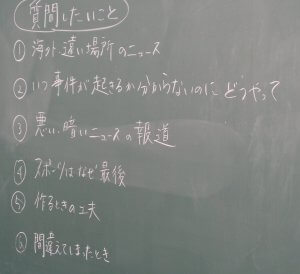 質問したいこと
① 海外、遠い場所のニュース
② いつ事件が起きるか分からないのにどうやって
③ 悪い、暗いニュースの報道
④ スポーツはなぜ最後
⑤ 作るときの工夫
⑥ 間違えてしまったとき